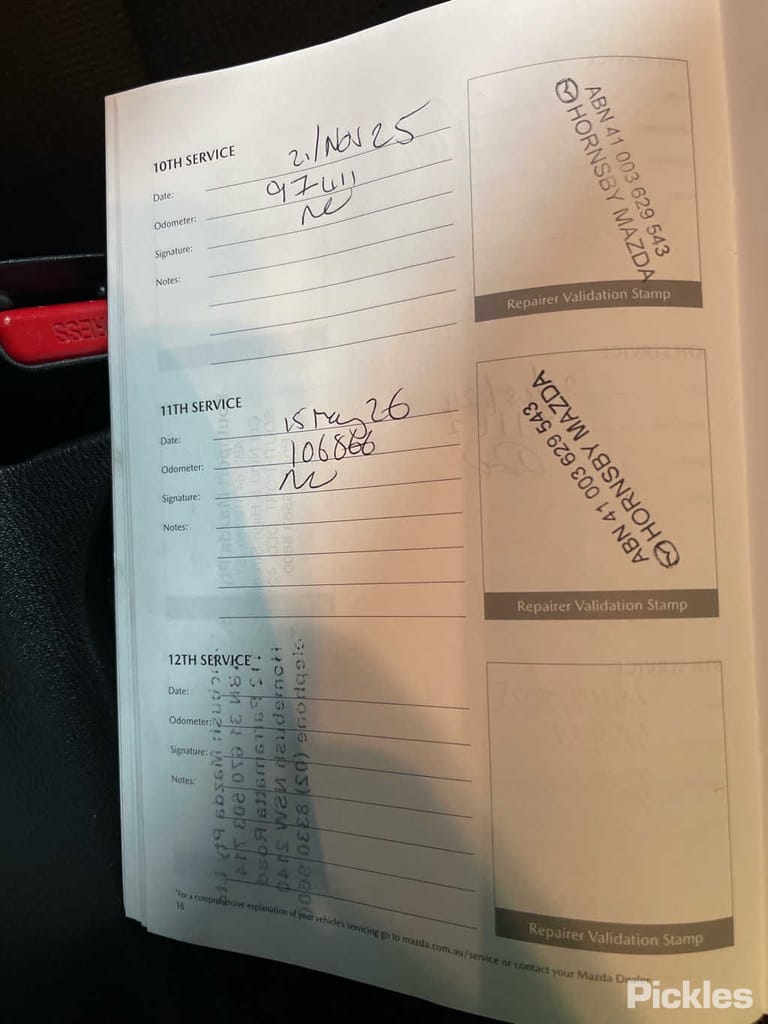 10TH SERVICE
Date: 21/Nov 25
Odometer: 97411
Signature:
Notes:
ABN 41 003 629 543
HORNSBY MAZDA
Repairer Validation Stamp
11TH SERVICE
Date: 15 May 26
Odometer: 106866
Signature:
Notes:
ABN 41 003 629 543
HORNSBY MAZDA
Repairer Validation Stamp
12TH SERVICE
Date:
Odometer:
Signature:
Notes:
Repairer Validation Stamp
*For a comprehensive explanation of your vehicle's servicing go to mazda.com.au/service or contact your Mazda Dealer
16
PRESS
Telephone (02) 8330 6600
Homebush NSW 2140
Parramatta Road
ABN 31 670 503 714
Mazda Pty Ltd
Pickles